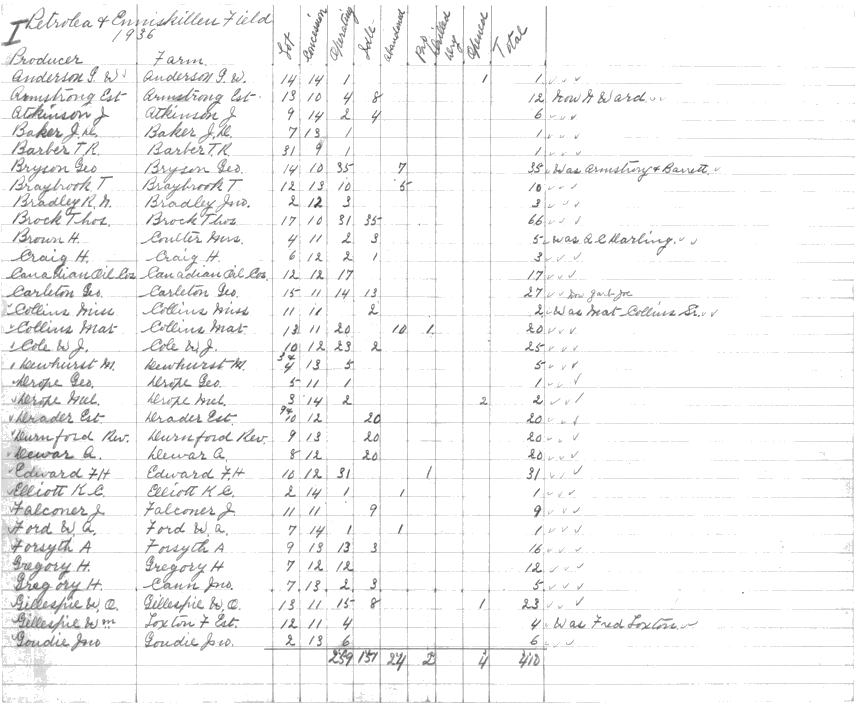 I Petrolea & Enniskillen Field
1936
Producer Farm Lot Concession Operating Idle abandoned Drilled Dry Opened Total
Anderson G. W. Anderson G. W. 14 14 1 1 1
Armstrong Est Armstrong Est. 13 10 4 8 12 Now Ward
Atkinson J Atkinson J 9 14 2 4 6
Baker J. Baker J. 7 13 1 1
Barber T.R. Barber T.R. 31 9 1 1
Bryson Geo Bryson Geo. 14 10 35 7 35 Was Armstrong & Barrett
Braybrook T Braybrook T 12 13 10 5 10
Bradley R. Bradley Jno. 2 12 3 3
Brock Thos. Brock Thos. 17 10 31 35 66
Brown H. Coulter Mrs. 4 11 2 3 5 Was Darling
Craig H. Craig H. 6 12 2 1 3
Canadian Oil Cos Canadian Oil Cos. 12 12 17 17
Carleton Geo. Carleton Geo. 15 11 14 13 27 Now
Collins Miss Collins Miss 11 11 2 2 Was Mat Collins Sr.
Collins Mat Collins Mat 13 11 20 10 1 20
Cole W J. Cole W J. 10 12 23 2 25
Dewhurst M. Dewhurst M. 3&4 13 5 5
Drope Geo. Drope Geo. 5 11 1 1
Drope Mel. Drope Mel. 3 14 2 2 2
Drader Est Drader Est. 9&10 12 20 20
Durnford Rev. Durnford Rev. 9 13 20 20
Dewar A. Dewar A. 8 12 20 20
Edward F.H Edward F.H 10 12 31 1 31
Elliott K.C. Elliott K.C. 2 14 1 1 1
Falconer J Falconer J 11 11 9 9
Ford W. A. Ford W. A. 7 14 1 1 1
Forsyth A Forsyth A 9 13 13 3 16
Gregory H. Gregory H 7 12 12 12
Gregory H. Cann Jno. 7 13 2 3 5
Gillespie W. O. Gillespie W. O. 13 11 15 8 1 23
Gillespie Wm Loxton F Est 12 11 4 4 Was Fred Loxton
Goudie Jno Goudie Jno. 2 13 6 6
259 151 24 2 4 410